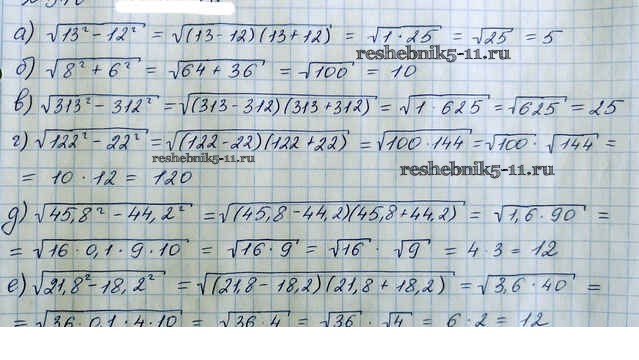 а) √(13² − 12²) = √((13−12)(13+12)) = √(1·25) = √25 = 5
reshebnik5-11.ru
б) √(8² + 6²) = √(64 + 36) = √100 = 10
в) √(313² − 312²) = √((313−312)(313+312)) = √(1·625) = √625 = 25
г) √(122² − 22²) = √((122−22)(122+22)) = √(100·144) = √100 · √144 =
reshebnik5-11.ru
reshebnik5-11.ru
= 10 · 12 = 120
д) √(45,8² − 44,2²) = √((45,8−44,2)(45,8+44,2)) = √(1,6·90) =
= √(16·0,1·9·10) = √(16·9) = √16 · √9 = 4·3 = 12
е) √(21,8² − 18,2²) = √((21,8−18,2)(21,8+18,2)) = √(3,6·40) =
= √(36·0,1·4·10) = √(36·4) = √36 · √4 = 6·2 = 12